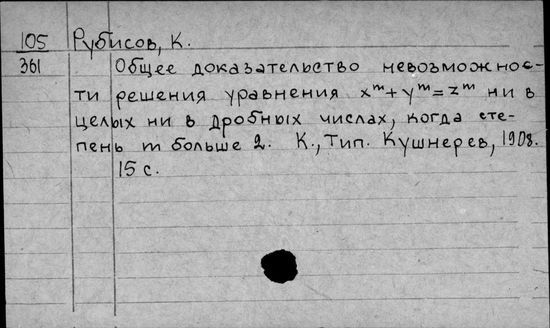 105 Рубисов, К.
361 Общее доказательство невозможнос-
ти решения уравнения xᵐ+yᵐ=zᵐ ни в
целых ни в дробных числах, когда сте-
пень m больше 2. К., Тип. Кушнерев, 1908.
15 с.